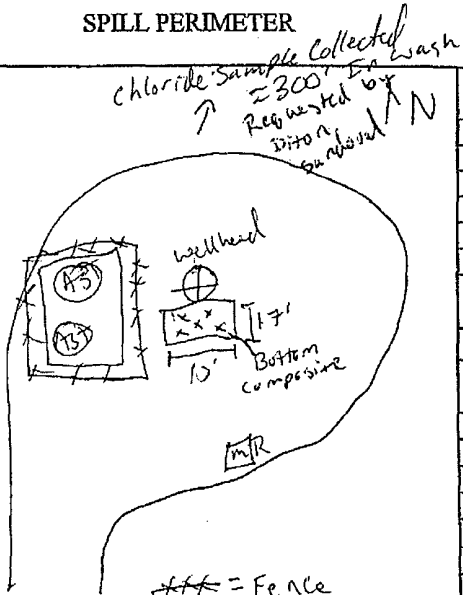 SPILL PERIMETER
chloride sample collected
≈300' In wash
Requested by
Sandoval
N
wellhead
AST
AST
17'
10'
Bottom
composite
MR
xxx = Fence